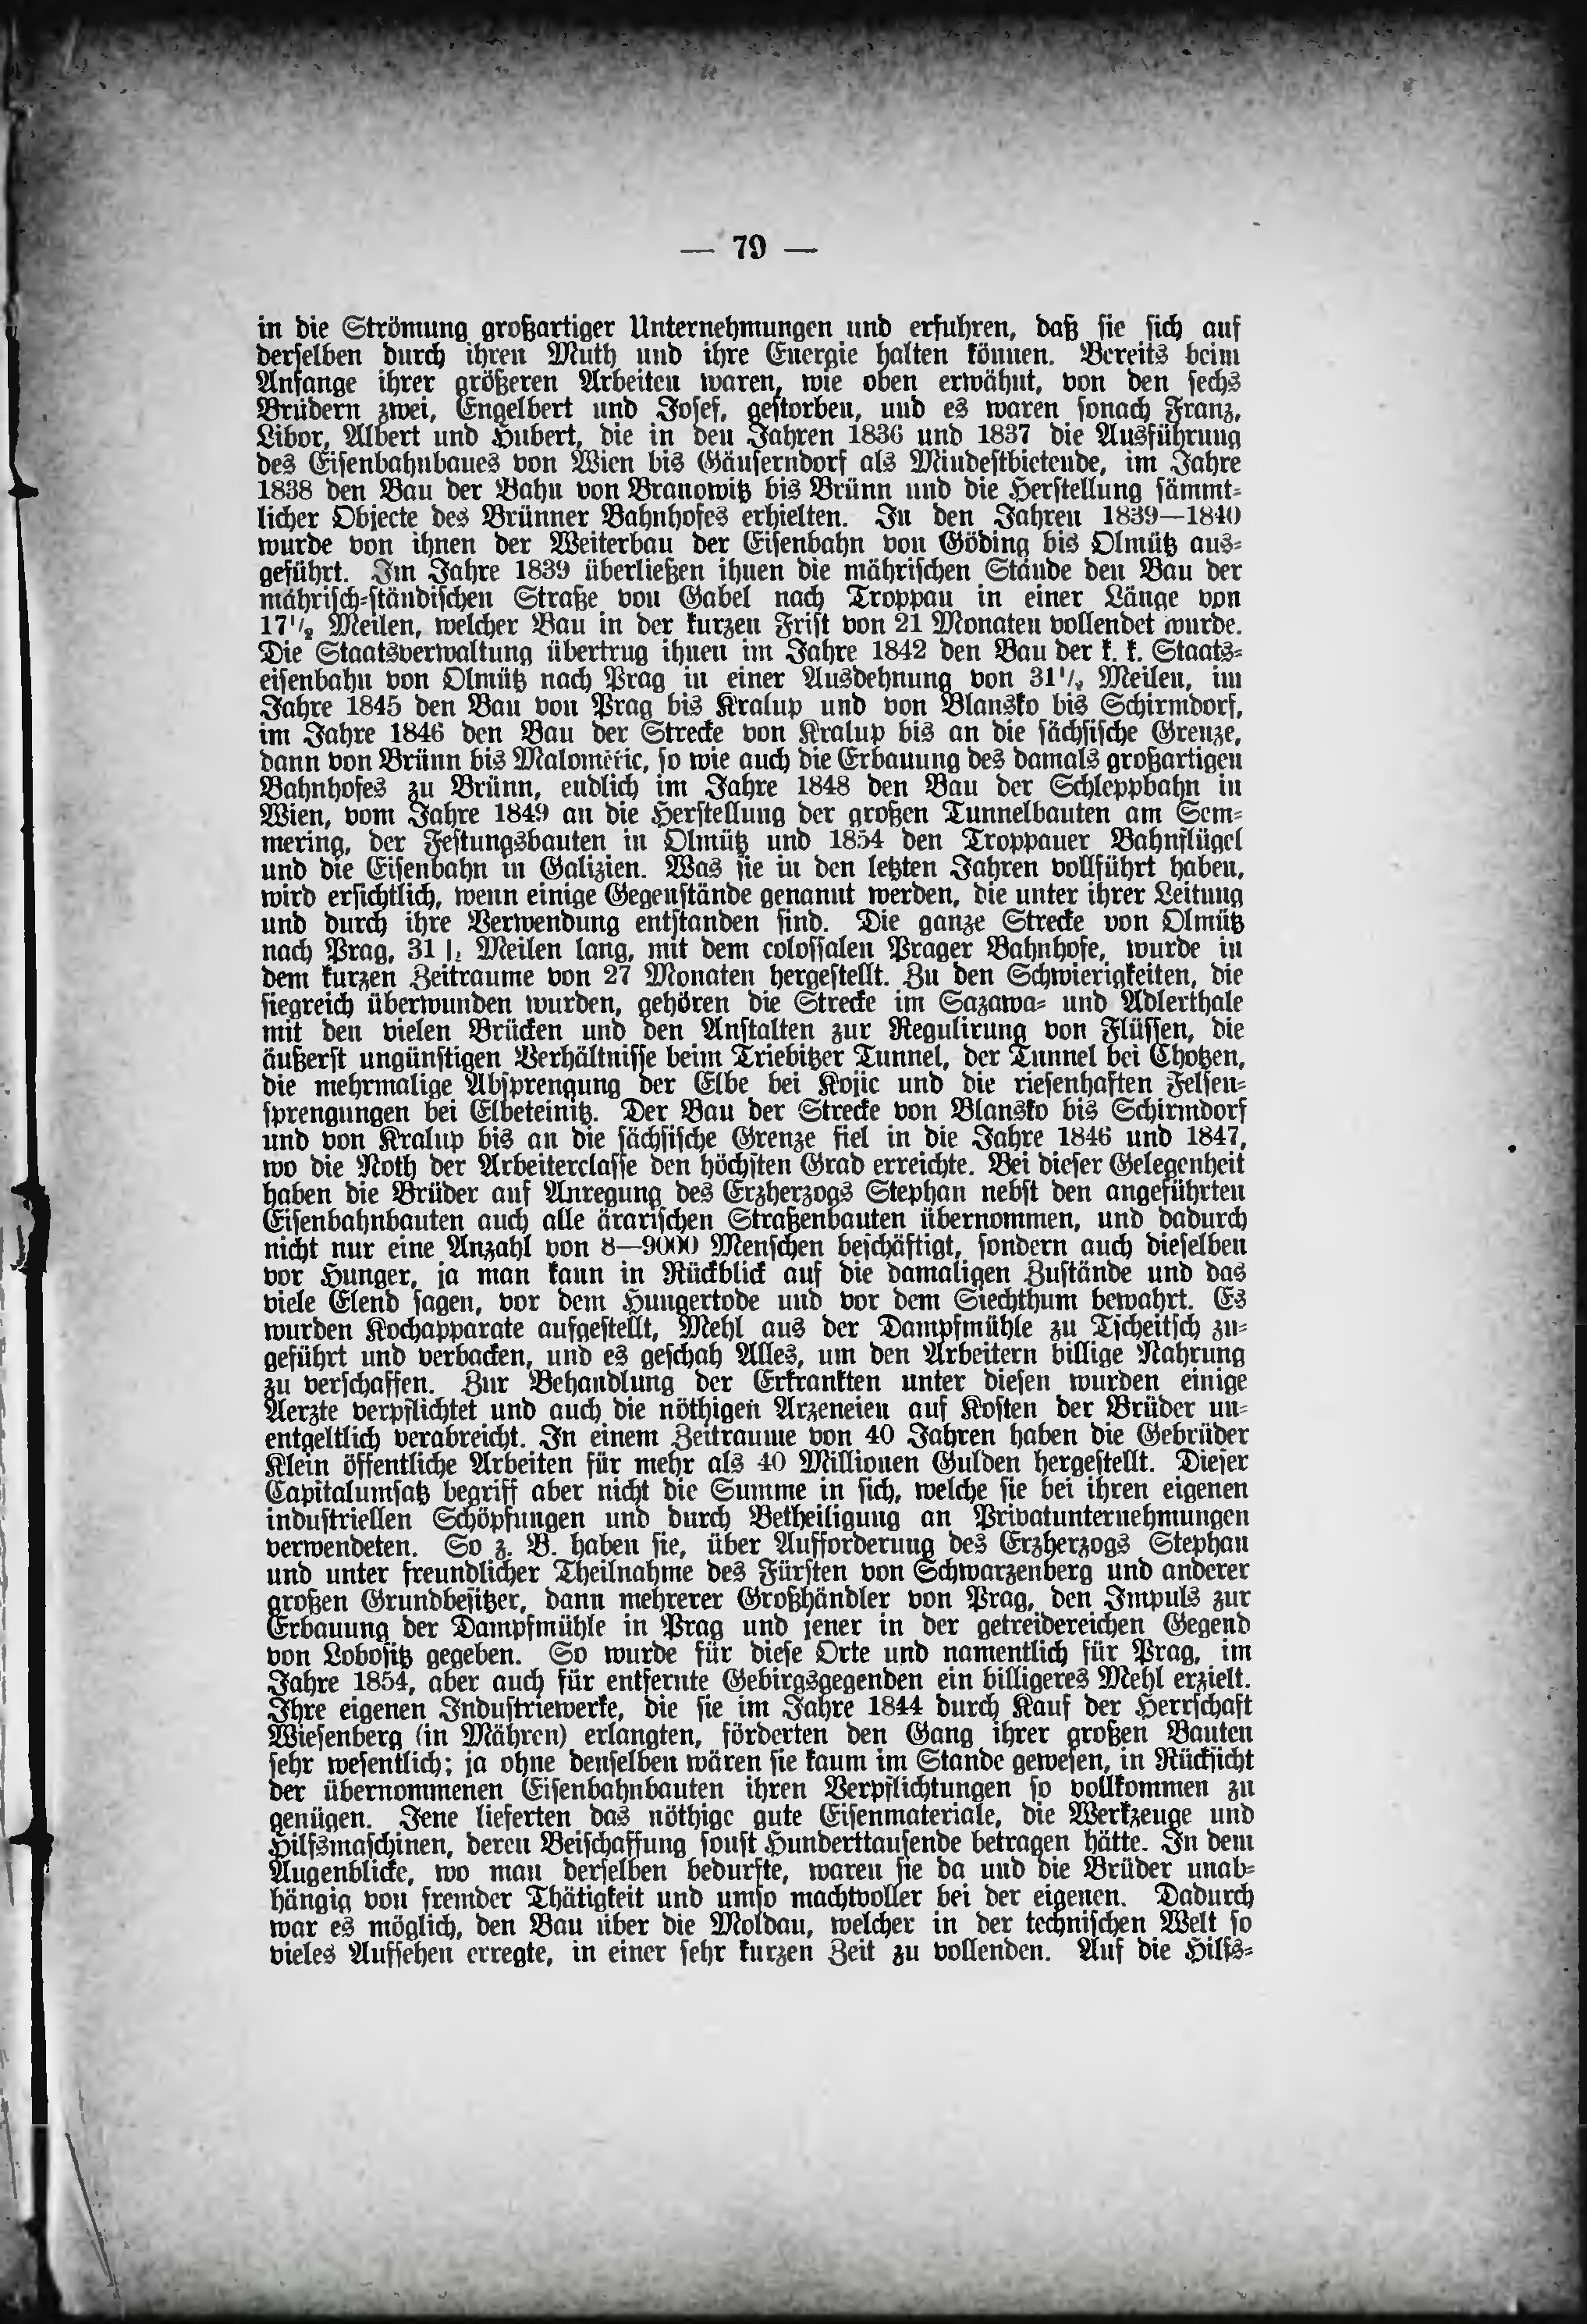 — 79 —
in die Strömung großartiger Unternehmungen und erfuhren, daß sie sich auf
derselben durch ihren Muth und ihre Energie halten können. Bereits beim
Anfange ihrer größeren Arbeiten waren, wie oben erwähnt, von den sechs
Brüdern zwei, Engelbert und Josef, gestorben, und es waren sonach Franz,
Libor, Albert und Hubert, die in den Jahren 1836 und 1837 die Ausführung
des Eisenbahnbaues von Wien bis Gänserndorf als Mindestbietende, im Jahre
1838 den Bau der Bahn von Branowitz bis Brünn und die Herstellung sämmt-
licher Objecte des Brünner Bahnhofes erhielten. In den Jahren 1839—1840
wurde von ihnen der Weiterbau der Eisenbahn von Göding bis Olmütz aus-
geführt. Im Jahre 1839 überließen ihnen die mährischen Stände den Bau der
mährisch-ständischen Straße von Gabel nach Troppau in einer Länge von
17½ Meilen, welcher Bau in der kurzen Frist von 21 Monaten vollendet wurde.
Die Staatsverwaltung übertrug ihnen im Jahre 1842 den Bau der k. k. Staats-
eisenbahn von Olmütz nach Prag in einer Ausdehnung von 31½ Meilen, im
Jahre 1845 den Bau von Prag bis Kralup und von Blansko bis Schirmdorf,
im Jahre 1846 den Bau der Strecke von Kralup bis an die sächsische Grenze,
dann von Brünn bis Maloměřic, so wie auch die Erbauung des damals großartigen
Bahnhofes zu Brünn, endlich im Jahre 1848 den Bau der Schleppbahn in
Wien, vom Jahre 1849 an die Herstellung der großen Tunnelbauten am Sem-
mering, der Festungsbauten in Olmütz und 1854 den Troppauer Bahnflügel
und die Eisenbahn in Galizien. Was sie in den letzten Jahren vollführt haben,
wird ersichtlich, wenn einige Gegenstände genannt werden, die unter ihrer Leitung
und durch ihre Verwendung entstanden sind. Die ganze Strecke von Olmütz
nach Prag, 31 Meilen lang, mit dem colossalen Prager Bahnhofe, wurde in
dem kurzen Zeitraume von 27 Monaten hergestellt. Zu den Schwierigkeiten, die
siegreich überwunden wurden, gehören die Strecke im Sazawa- und Adlerthale
mit den vielen Brücken und den Anstalten zur Regulirung von Flüssen, die
äußerst ungünstigen Verhältnisse beim Triebitzer Tunnel, der Tunnel bei Chotzen,
die mehrmalige Absprengung der Elbe bei Kojic und die riesenhaften Felsen-
sprengungen bei Elbeteinitz. Der Bau der Strecke von Blansko bis Schirmdorf
und von Kralup bis an die sächsische Grenze fiel in die Jahre 1846 und 1847,
wo die Noth der Arbeiterclasse den höchsten Grad erreichte. Bei dieser Gelegenheit
haben die Brüder auf Anregung des Erzherzogs Stephan nebst den angeführten
Eisenbahnbauten auch alle ärarischen Straßenbauten übernommen, und dadurch
nicht nur eine Anzahl von 8—9000 Menschen beschäftigt, sondern auch dieselben
vor Hunger, ja man kann in Rückblick auf die damaligen Zustände und das
viele Elend sagen, vor dem Hungertode und vor dem Siechthum bewahrt. Es
wurden Kochapparate aufgestellt, Mehl aus der Dampfmühle zu Tscheitsch zu-
geführt und verbacken, und es geschah Alles, um den Arbeitern billige Nahrung
zu verschaffen. Zur Behandlung der Erkrankten unter diesen wurden einige
Aerzte verpflichtet und auch die nöthigen Arzeneien auf Kosten der Brüder un-
entgeltlich verabreicht. In einem Zeitraume von 40 Jahren haben die Gebrüder
Klein öffentliche Arbeiten für mehr als 40 Millionen Gulden hergestellt. Dieser
Capitalumsatz begriff aber nicht die Summe in sich, welche sie bei ihren eigenen
industriellen Schöpfungen und durch Betheiligung an Privatunternehmungen
verwendeten. So z. B. haben sie, über Aufforderung des Erzherzogs Stephan
und unter freundlicher Theilnahme des Fürsten von Schwarzenberg und anderer
großen Grundbesitzer, dann mehrerer Großhändler von Prag, den Impuls zur
Erbauung der Dampfmühle in Prag und jener in der getreidereichen Gegend
von Lobositz gegeben. So wurde für diese Orte und namentlich für Prag, im
Jahre 1854, aber auch für entfernte Gebirgsgegenden ein billigeres Mehl erzielt.
Ihre eigenen Industriewerke, die sie im Jahre 1844 durch Kauf der Herrschaft
Wiesenberg (in Mähren) erlangten, förderten den Gang ihrer großen Bauten
sehr wesentlich; ja ohne denselben wären sie kaum im Stande gewesen, in Rücksicht
der übernommenen Eisenbahnbauten ihren Verpflichtungen so vollkommen zu
genügen. Jene lieferten das nöthige gute Eisenmateriale, die Werkzeuge und
Hilfsmaschinen, deren Beischaffung sonst Hunderttausende betragen hätte. In dem
Augenblicke, wo man derselben bedurfte, waren sie da und die Brüder unab-
hängig von fremder Thätigkeit und umso machtvoller bei der eigenen. Dadurch
war es möglich, den Bau über die Moldau, welcher in der technischen Welt so
vieles Aufsehen erregte, in einer sehr kurzen Zeit zu vollenden. Auf die Hilfs-